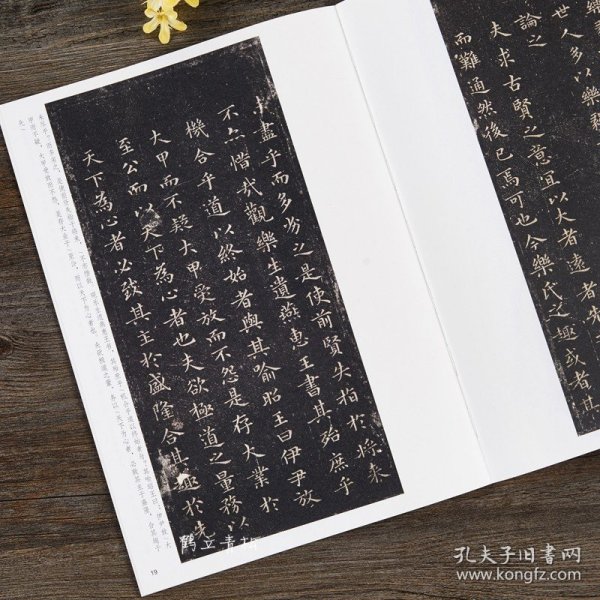 世人多以樂毅
論之
夫求古賢之意宜以大者遠者先
而難通然後已焉可也今樂氏之趣或者其
未盡乎而多劣之是使前賢失指於將來
不亦惜哉觀樂生遺燕惠王書其殆庶乎
機合乎道以終始者與其喻昭王曰伊尹放
大甲而不疑大甲受放而不怨是存大業於
至公而以天下為心者也夫欲極道之量務以
天下為心者必致其主於盛隆合其趣於先
19
孔夫子旧书网
www.kongfz.com